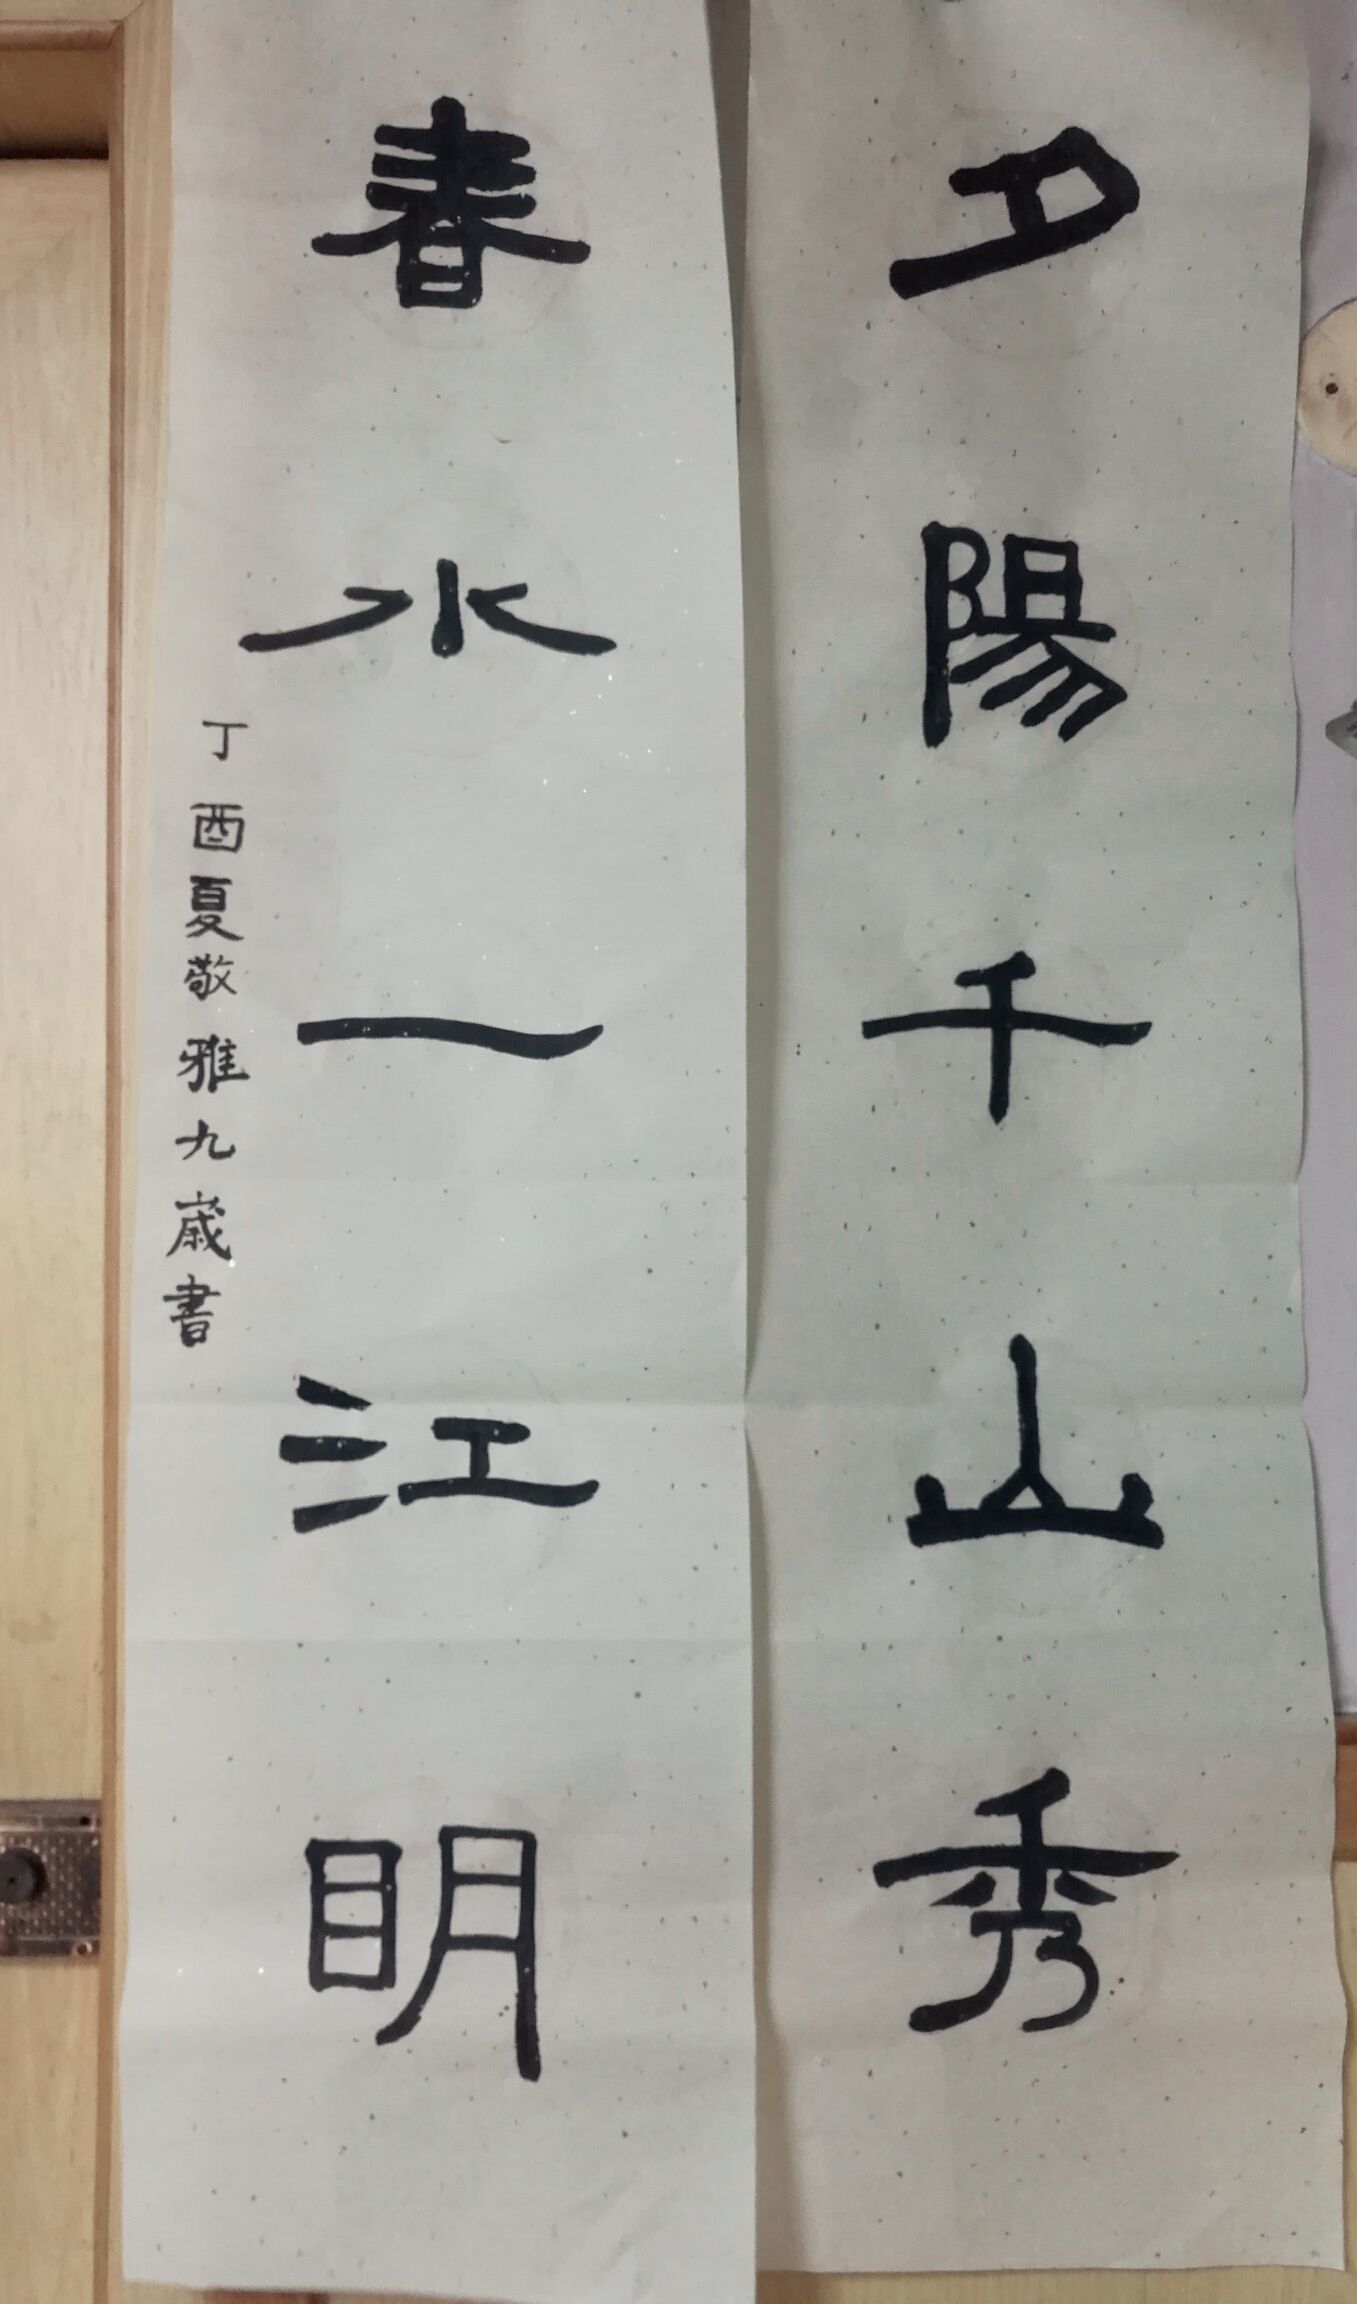 夕陽千山秀
春水一江明
丁酉夏敬雅九歲書